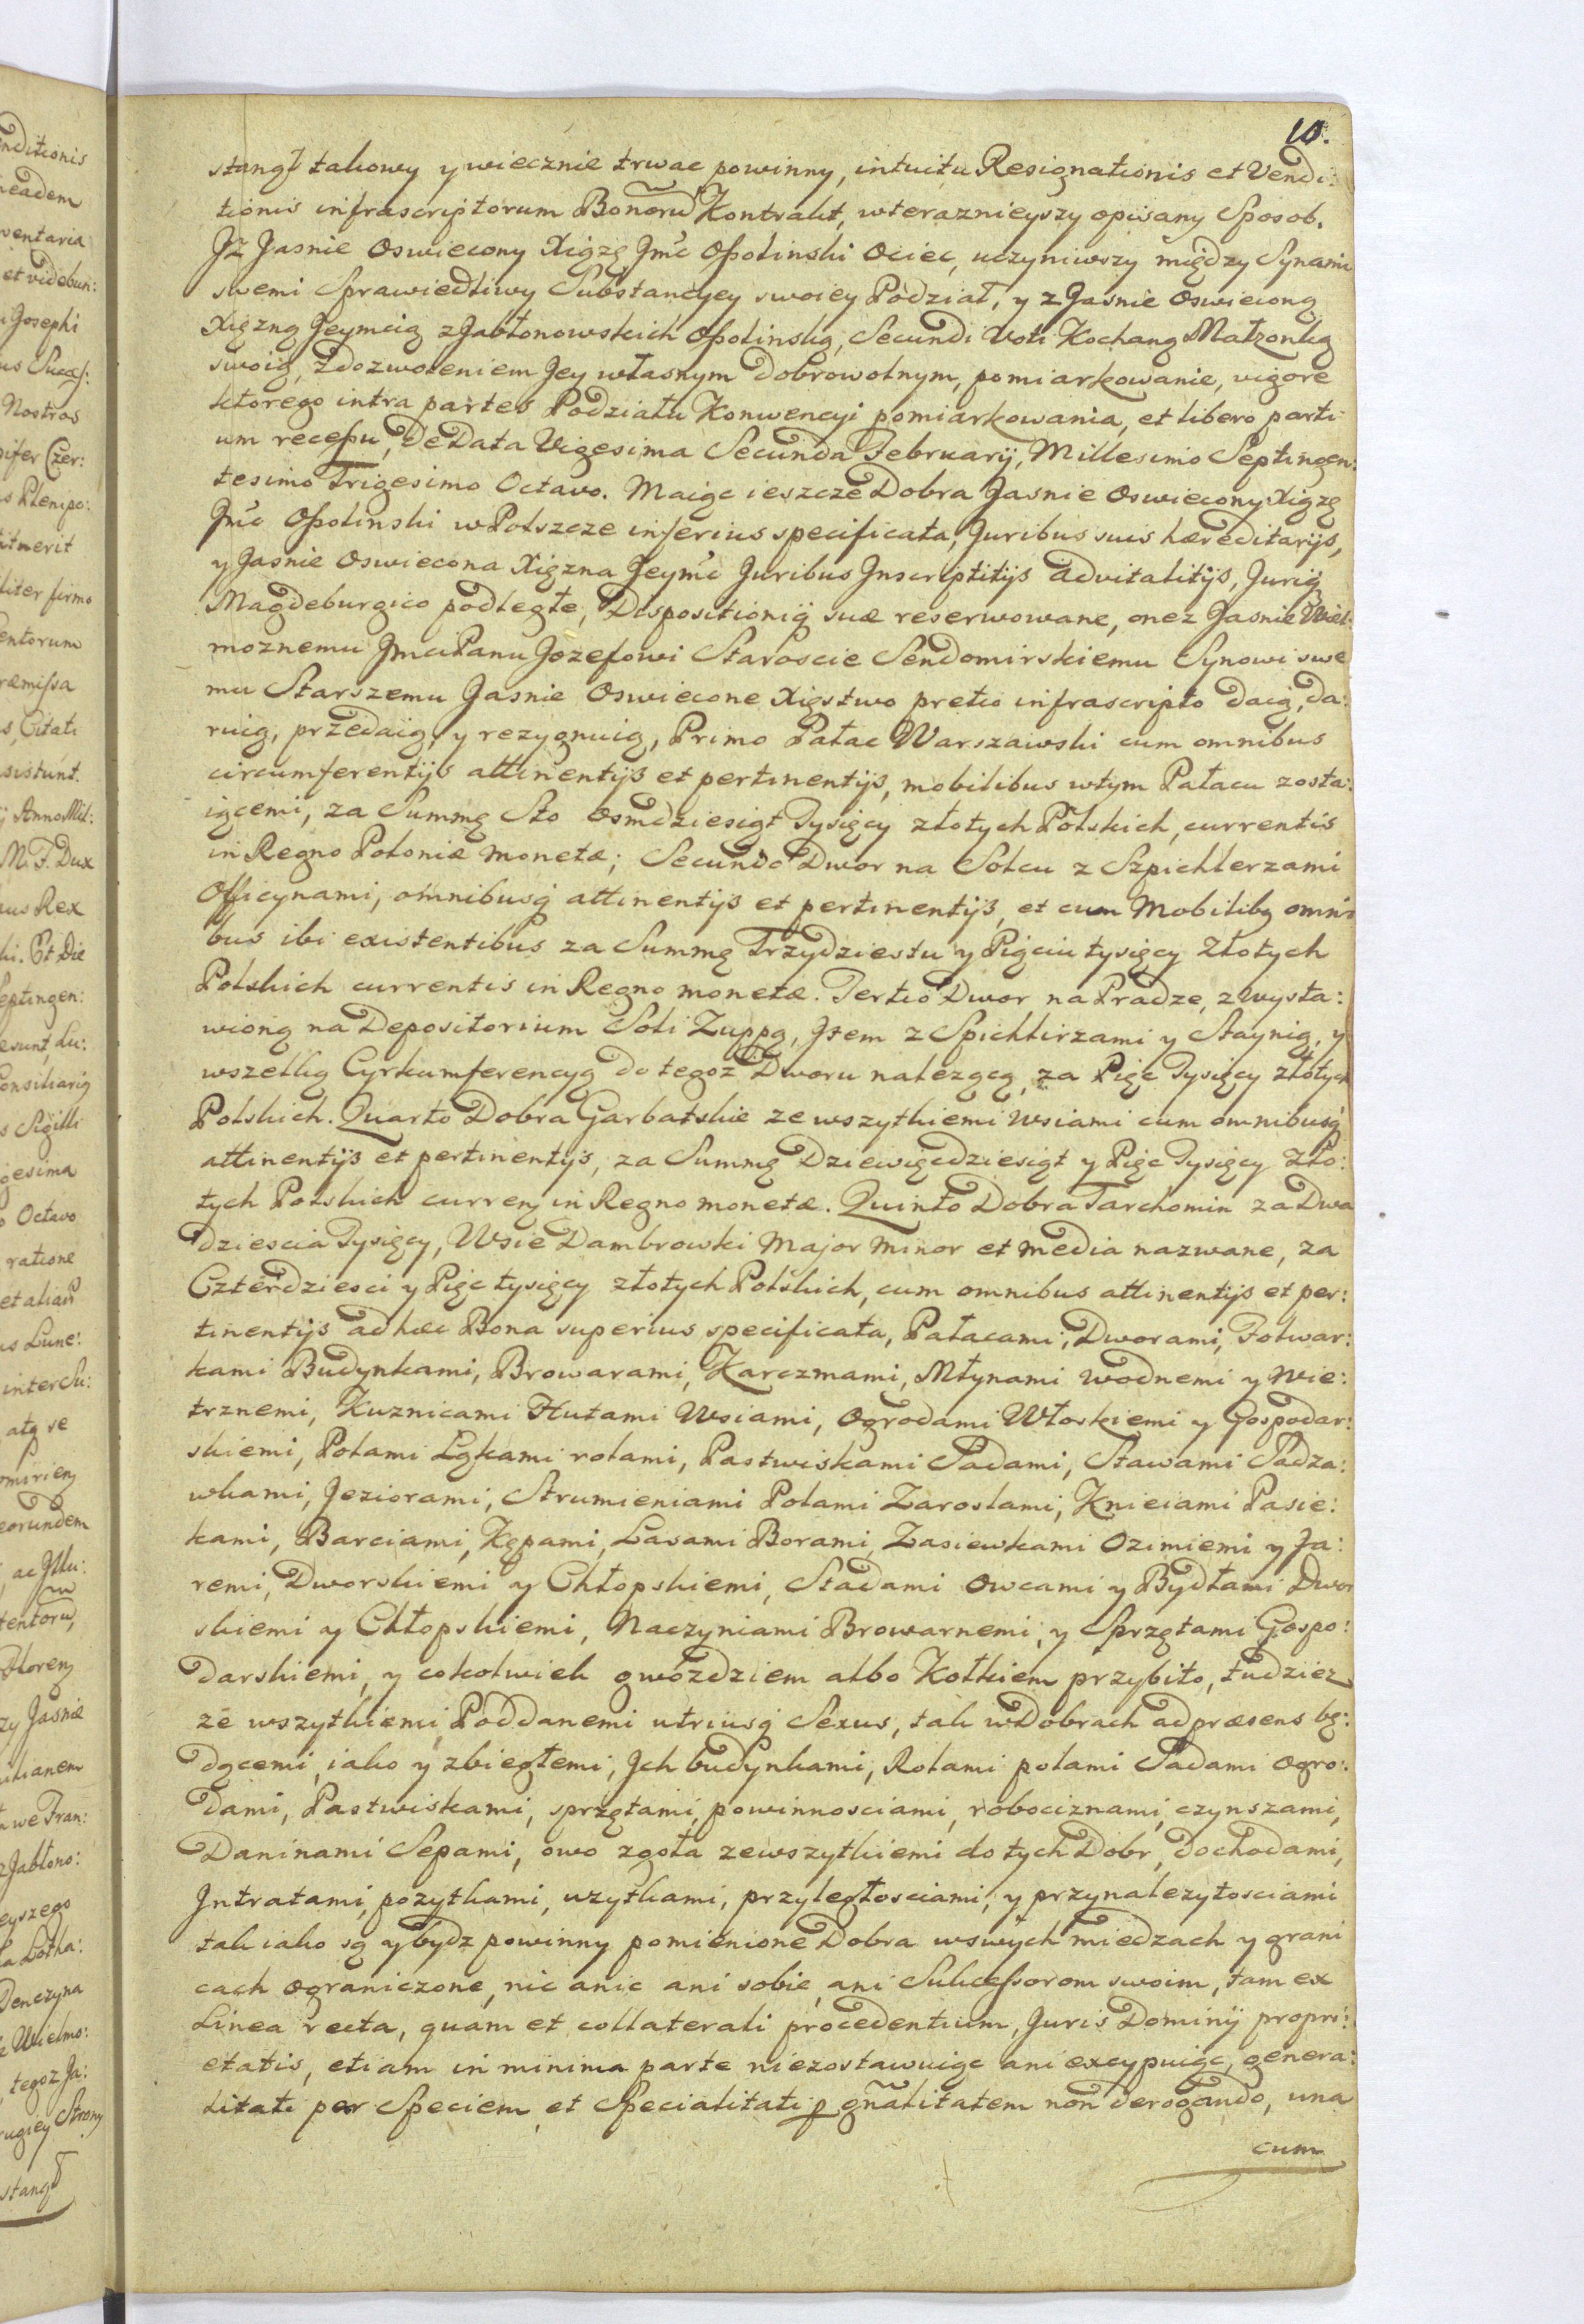 10.
stanął takowy y wiecznie trwac powinny, intuitu Resignationis et Vendi:
tionis infrascriptorum Bonorũ Kontrakt, wteraznieyszy opisany Sposob.
Jz Jasnie Oswiecony Xiązę Jmć Ossolinski Ociec, uczyniwszy między Synami
swemi Sprawiedliwy Substancyey swoiey Podział, y z Jasnie Oswieconą
Xięzną Jeymcią z Jabłonowskich Ossolinską, Secundi Voti Kochaną Małzonką
swoią, zdozwoleniem Jey własnym Dobrowolnym, pomiarkowanie, vigore
ktorego intra partes Podziału Konwencyi pomiarkowania, et libero parti:
um recessu, De Data Vigesima Secunda Februarij, Millesimo Septingen:
tesimo Trigesimo Octavo. Maiąc ieszcze Dobra Jasnie Oswiecony Xiązę
Jmć Ossolinski w Polszcze inferius specificata, Juribus suis hæreditarijs,
y Jasnie Oswiecona Xięzna Jeymć Juribus Inscriptitijs advitalitijs, Juriq́
Magdeburgico podległe, Dispositioniq́ suæ reserwowane, onez Jasnie Wiel:
moznemu Jmci Panu Jozefowi Staroscie Sendomirskiemu Synowi swe
mu Starszemu Jasnie Oswiecone Xięstwo pretio infrascripto daią, da:
ruią, przedaią, y rezygnuią, Primo Pałac Warszawski cum omnibus
circumferentijs attinentijs et pertinentijs, mobilibus wtym Pałacu zosta:
iącemi, za Summę Sto Osmdziesiąt Tysięcy złotych Polskich, currentis
in Regno Poloniæ monetæ; Secundo Dwor na Solcu z Szpichlerzami
Officynami, omnibusq́ attinentijs et pertinentijs, et cum Mobilibq omni
bus ibi existentibus za Summę Trzydziestu y Pięciu tysięcy Złotych
Polskich currentis in Regno monetæ. Tertio Dwor na Pradze, z wysta:
wioną na Depositorium Soli Zuppą, Jtem z Spichlirzami y Staynią, y
wszelką Cyrkumferencyą do tegoz Dworu nalezącą, za Pięc Tysięcy złotych
Polskich. Quarto Dobra Garbatskie ze wszytkiemi wsiami cum omnibusq́
attinentijs et pertinentijs, za Summę Dziewięcdziesiąt y Pięc Tysięcy Zło:
tych Polskich curren in Regno monetæ. Quinto Dobra Tarchomin za Dwa
dziescia Tysięcy, Wsie Dambrowski Major Minor et Media nazwane, za
Czterdziesci y Pięc tysięcy złotych Polskich, cum omnibus attinentijs et per:
tinentijs ad hæc Bona superius specificata, Pałacami, Dworami, Folwar:
kami Budynkami, Browarami, Karczmami, Młynami wodnemi y Wie:
trznemi, Kuznicami Hutami Wsiami, Ogrodami Włoskiemi y Gospodar:
skiemi, Polami Łąkami rolami, Pastwiskami Sadami, Stawami Sadza:
wkami, Jeziorami, Strumieniami Polami Zaroslami, Knieiami Pasie:
kami, Barciami, Kępami, Lasami Borami, Zasiewkami Ozimiemi y Ja:
remi, Dworskiemi y Chłopskiemi, Stadami Owcami y Bydłami Dwor
skiemi y Chłopskiemi, Naczyniami Browarnemi, y Sprzętami Gospo:
darskiemi, y cokolwiek gwozdziem albo Kołkiem przybito, tudziez
ze wszytkiemi Poddanemi utriusq́ Sexus, tak w Dobrach ad præsens bę:
dącemi, iako y zbiegłemi, Jch budynkami, Rolami polami Sadami Ogro:
dami, Pastwiskami, sprzętami, powinnosciami, robociznami, czynszami,
Daninami Sepami, owo zgoła zewszytkiemi do tych Dobr, dochodami,
Jntratami, pozytkami, uzytkami, przyległosciami, y przynalezytosciami
tak iako są y bydz powinny pomienione Dobra wswych miedzach y grani
cach ograniczone, nic anic ani sobie, ani Sukcessorom swoim, tam ex
Linea recta, quam et collaterali procedentium, Juris Dominij propri:
etatis, etiam in minima parte niezostawuiąc ani excypuiąc, genera:
litati per Speciem, et Specialitati p gñalitatem non derogando, una
cum